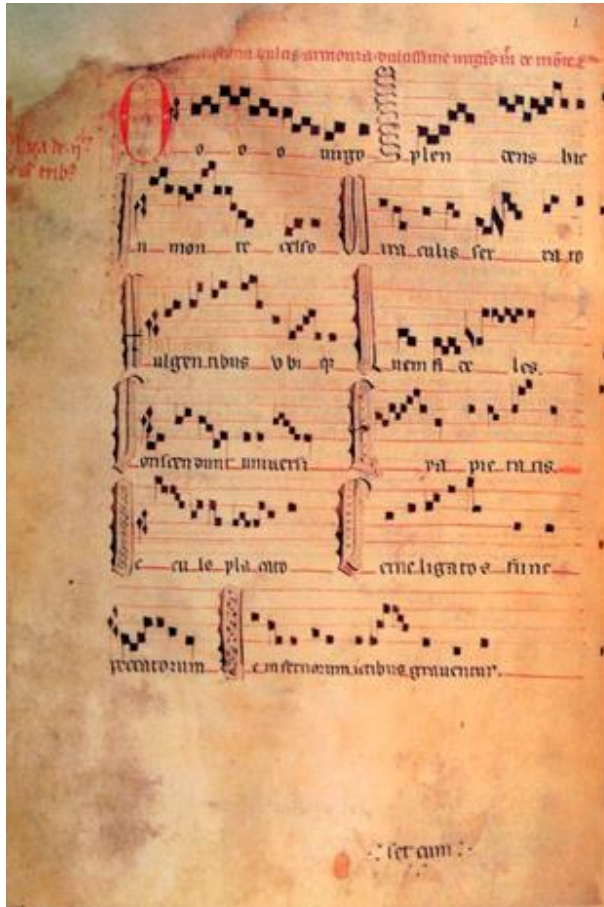 dulcis armonia dulcissime
O o o o uirgo splen dens hic
I n mon te celso M ira culis ser ra to
F ulgen tibus v bi q
uem fi de les.
C onscen dunt uniuersi E ya pie ta tis.
cu lo pla cato C erne ligatos fune
peccatorum N e infernorum ictibus grauentur.
set cum